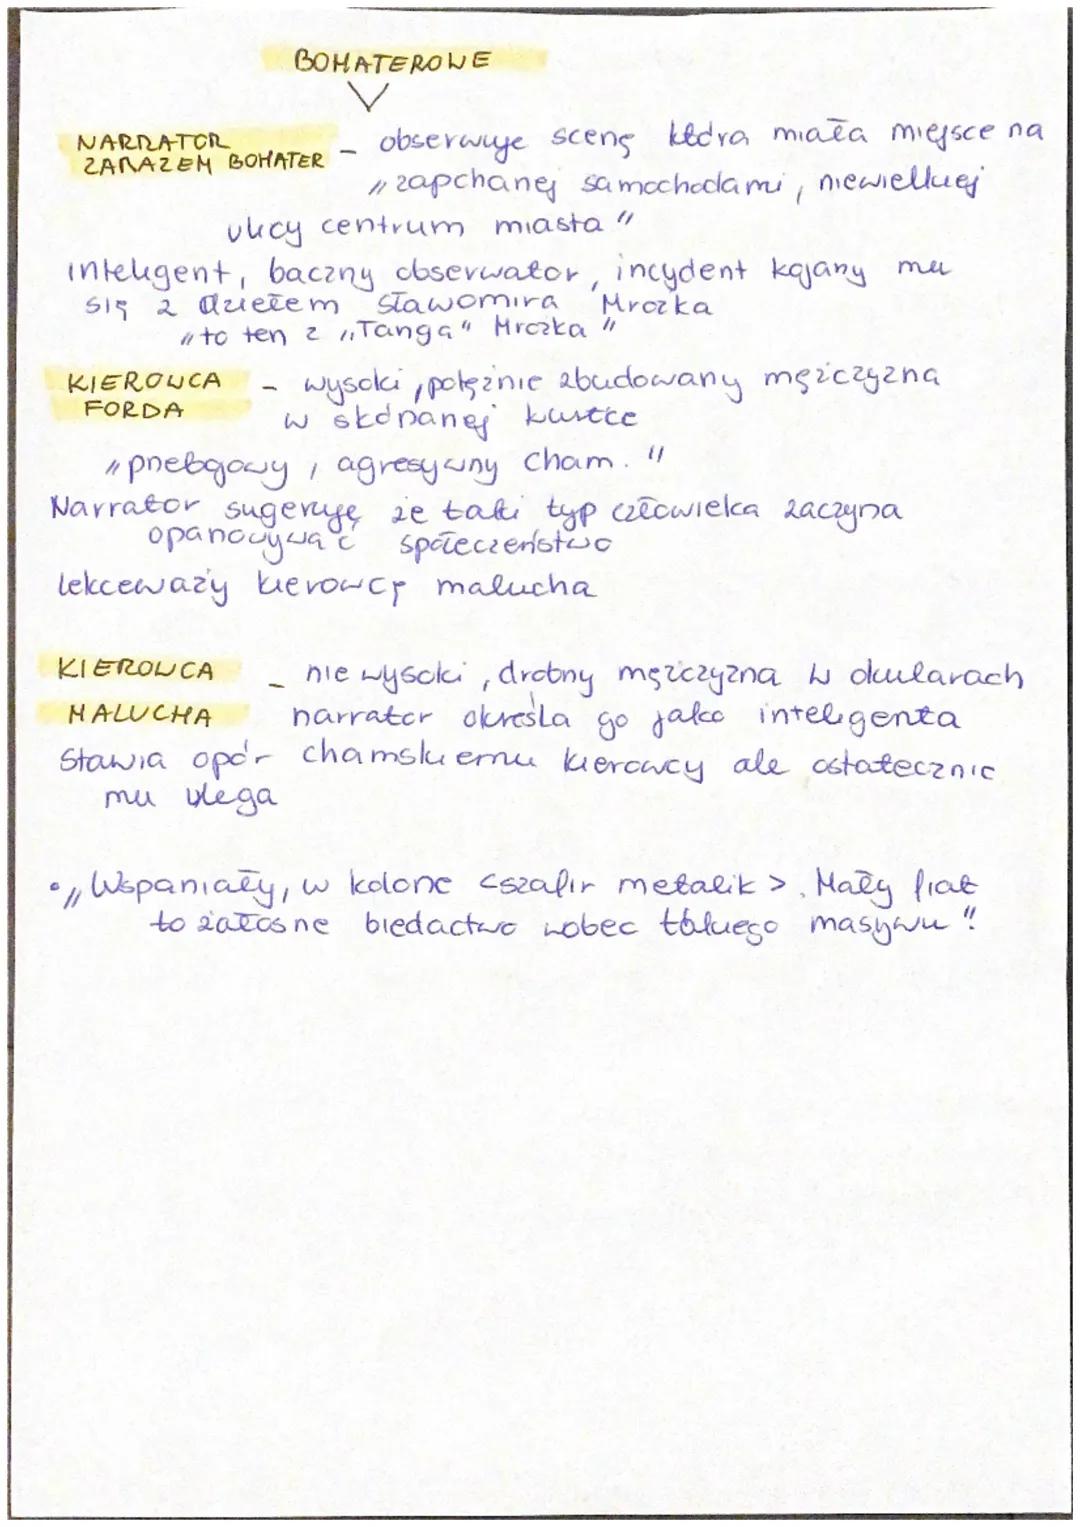 BOHATEROWE
NARRATOR
ZARAZEM BOHATER - obserwuje scenę która miała miejsce na
"zapchanej samochodami, niewielkiej
ulicy centrum miasta"
inteligent, baczny obserwator, incydent kojarzy mu
się z dziełem Sławomira Mrożka
"to ten z „Tanga" Mrożka"
KIEROWCA - wysoki, potężnie zbudowany mężczyzna
FORDA w skórzanej kurtce
"przebojowy, agresywny cham."
Narrator sugeruje że taki typ człowieka zaczyna
opanowywać społeczeństwo
lekceważy kierowcę malucha
KIEROWCA - niewysoki, drobny mężczyzna w okularach
MALUCHA narrator określa go jako inteligenta
Stawia opór chamskiemu kierowcy ale ostatecznie
mu ulega
• „Wspaniały, w kolorze <szafir metalik>. Mały fiat
to żałosne biedactwo wobec takiego masywu"!